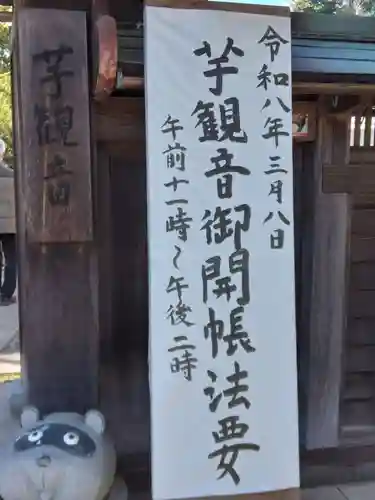 令和八年三月八日
芋観音御開帳法要
午前十一時〜午後二時
芋観音